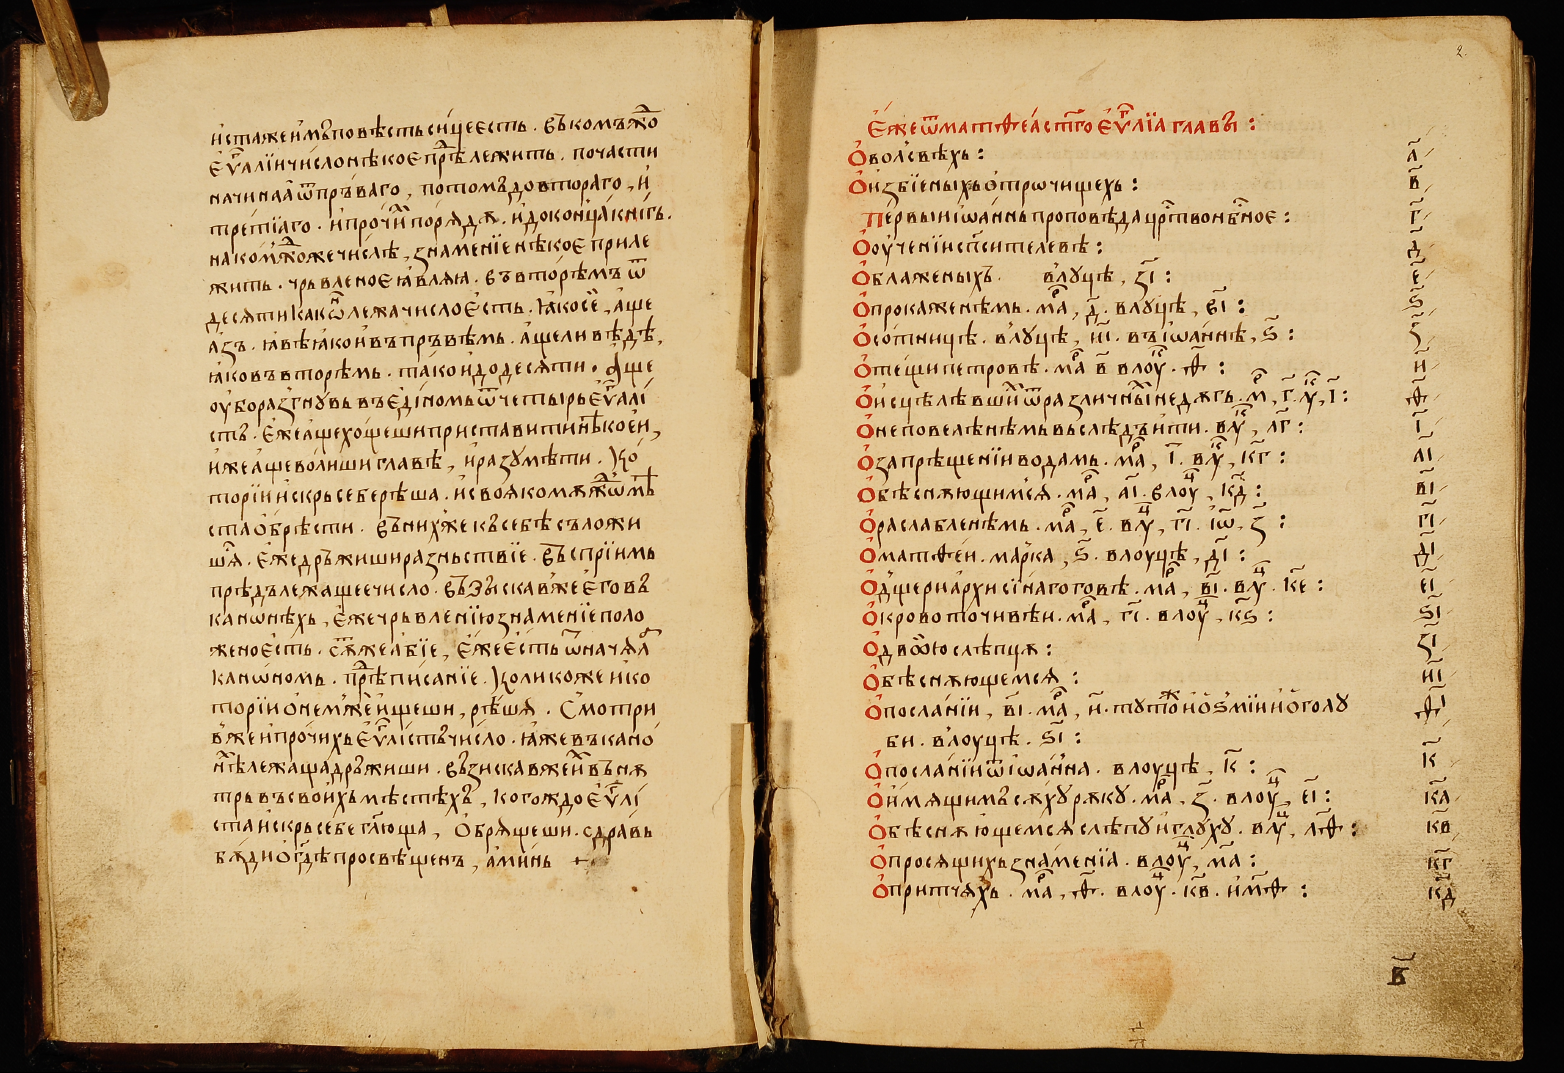 и҆стажеи҆мꙋповѣстьсицеесть. въкомъж҇о
е҆ѵⷢ҇алїичислонѣкоепⷣрѣлежить. почасти
начинаа҆ѿпръваго, потомꙋдовтораго, и҆
третїаго. и҆прочїи҆порѧдꙋ. и҆доконцакнигъ.
накоⷨждожечислѣ, знаменїенѣкоеприле
жить. чръвленоеꙗ҆влꙗꙗ. въвторѣмъѿ
десѧтикакѡ҆лежачислое҆сть. ꙗ҆косѐ, а҆ще
а҆зъ. ꙗ҆вѣꙗ҆кои҆въпръвѣмь. а҆щеливѣдѣ,
ꙗ҆ковъвторѣмь. такои҆додесѧти. а҆ще
оу҆боразгнꙋвьвъе҆диномьѿчетырье҆ѵⷢ҇алі
стъ. е҆жеа҆щехощешиприставитинѣкоеи҆,
и҆жеа҆щеволишиглавѣ, и҆разꙋмѣти. ко
торїии҆скрьсеберѣша. и҆своѧкомꙋждомѣ
стао҆брѣсти. въниⷯжекъсебѣсъложи
шѧ. е҆жедръжиширазньствїе. въспрїимь
прѣдълежащеечисло. възыскавжее҆говъ
канѡнѣхь, е҆жечрьвленїюзнаменїеполо
женое҆сть. сꙋжеа҆бїе, е҆жее҆стьѿначѧл
канѡномь. пⷣрѣписанїе. коликожеи҆ко
торїио҆немжеи҆щеши, рѣшѧ. смотри
вжеи҆прочихье҆ѵⷢ҇лістъчисло. ꙗ҆жевъкано
нⷯѣлежащадръжиши. възискавжеи҆вънѧ
тръвъсвои҆хьмѣстѣхъ, когождое҆ѵⷢ҇лі
стаи҆скрьсебегл҃юща, о҆брѧщеши. сдравь
бꙋдии҆о҆гдѣпросвѣщенъ, а҆минь +
е҆жеѿматѳеаст҃гое҆ѵⷢ҇лїаглавы :
о҆волсвѣхь : а҃
о҆и҆збїеныхьо҆трѡчищехь : в҃
первыиі҆ѡаннъпроповѣдацрⷭ҇твонбⷭ҇ное : г҃
о҆оу҆ченїисп҃сителевѣ : д҃
о҆блаженыхъ. влꙋцѣ, з҃і : е҃
о҆прокаженѣмь. маⷬ, д҃. влꙋцѣ, в҃і : ѕ҃
о҆сотницѣ. влꙋцѣ, и҃і. въі҆ѡаннѣ, ѕ҃ : з҃
о҆тещипетровѣ. маⷬ в҃ влоуⷦ. ѳ҃ : и҃
о҆и҆сцѣлѣвшїиѿразличныинедꙋгь. мⷬ, г҃. лꙋⷦ, і҃ : ѳ҃
о҆неповелѣнѣмьвьслѣдъи҆ти. влꙋⷦ, лг҃ : і҃
о҆запрѣщенїиводамь. маⷬ, і҃. влꙋⷦ, кг҃ : аі҃
о҆бѣснꙋющимсѧ. маⷬ, аі҃. влоуⷰ, кд҃ : ві҃
о҆раслабленѣмь. маⷬ, е҃. влꙋⷰ, гі҃. і҆ѡ, з҃ : гі҃
о҆матѳеи. марка, ѕ҃. влоуцѣ, ді҃ : ді҃
о҆дщериархисінагоговѣ. маⷬ, ві҃. влꙋⷰ. ке҃ : еі҃
о҆кровоточивѣи. маⷬ, гі҃. влоуⷰ, кѕ҃ : ѕі҃
о҆двоюслѣпцꙋ : зі҃
о҆бѣснꙋющемсѧ : иі҃
о҆посланїи, ві҃. маⷬ, и҃. тꙋтожеи҆о҆ѕмїии҆о҆голꙋ ѳі҃
би. влоуцѣ. ѕі҃ :
о҆посланїиѿі҆ѡанна. влоуцѣ, к҃ : к҃
о҆и҆мѧщимъсꙋхꙋрꙋкꙋ. маⷬ, з҃. влоуⷰ, еі҃ : ка҃
о҆бѣснꙋю҆щемсѧслѣпꙋи҆глꙋхꙋ. влꙋⷰ, лѳ҃ : кв҃
о҆просѧщихьзнаменїа. влоуⷰ, ма҃ : кг҃
о҆притчѧхь. маⷬ, ѳ҃. влоуⷰ. кв҃. и҆мѳ҃ : кд҃
в҃
2.